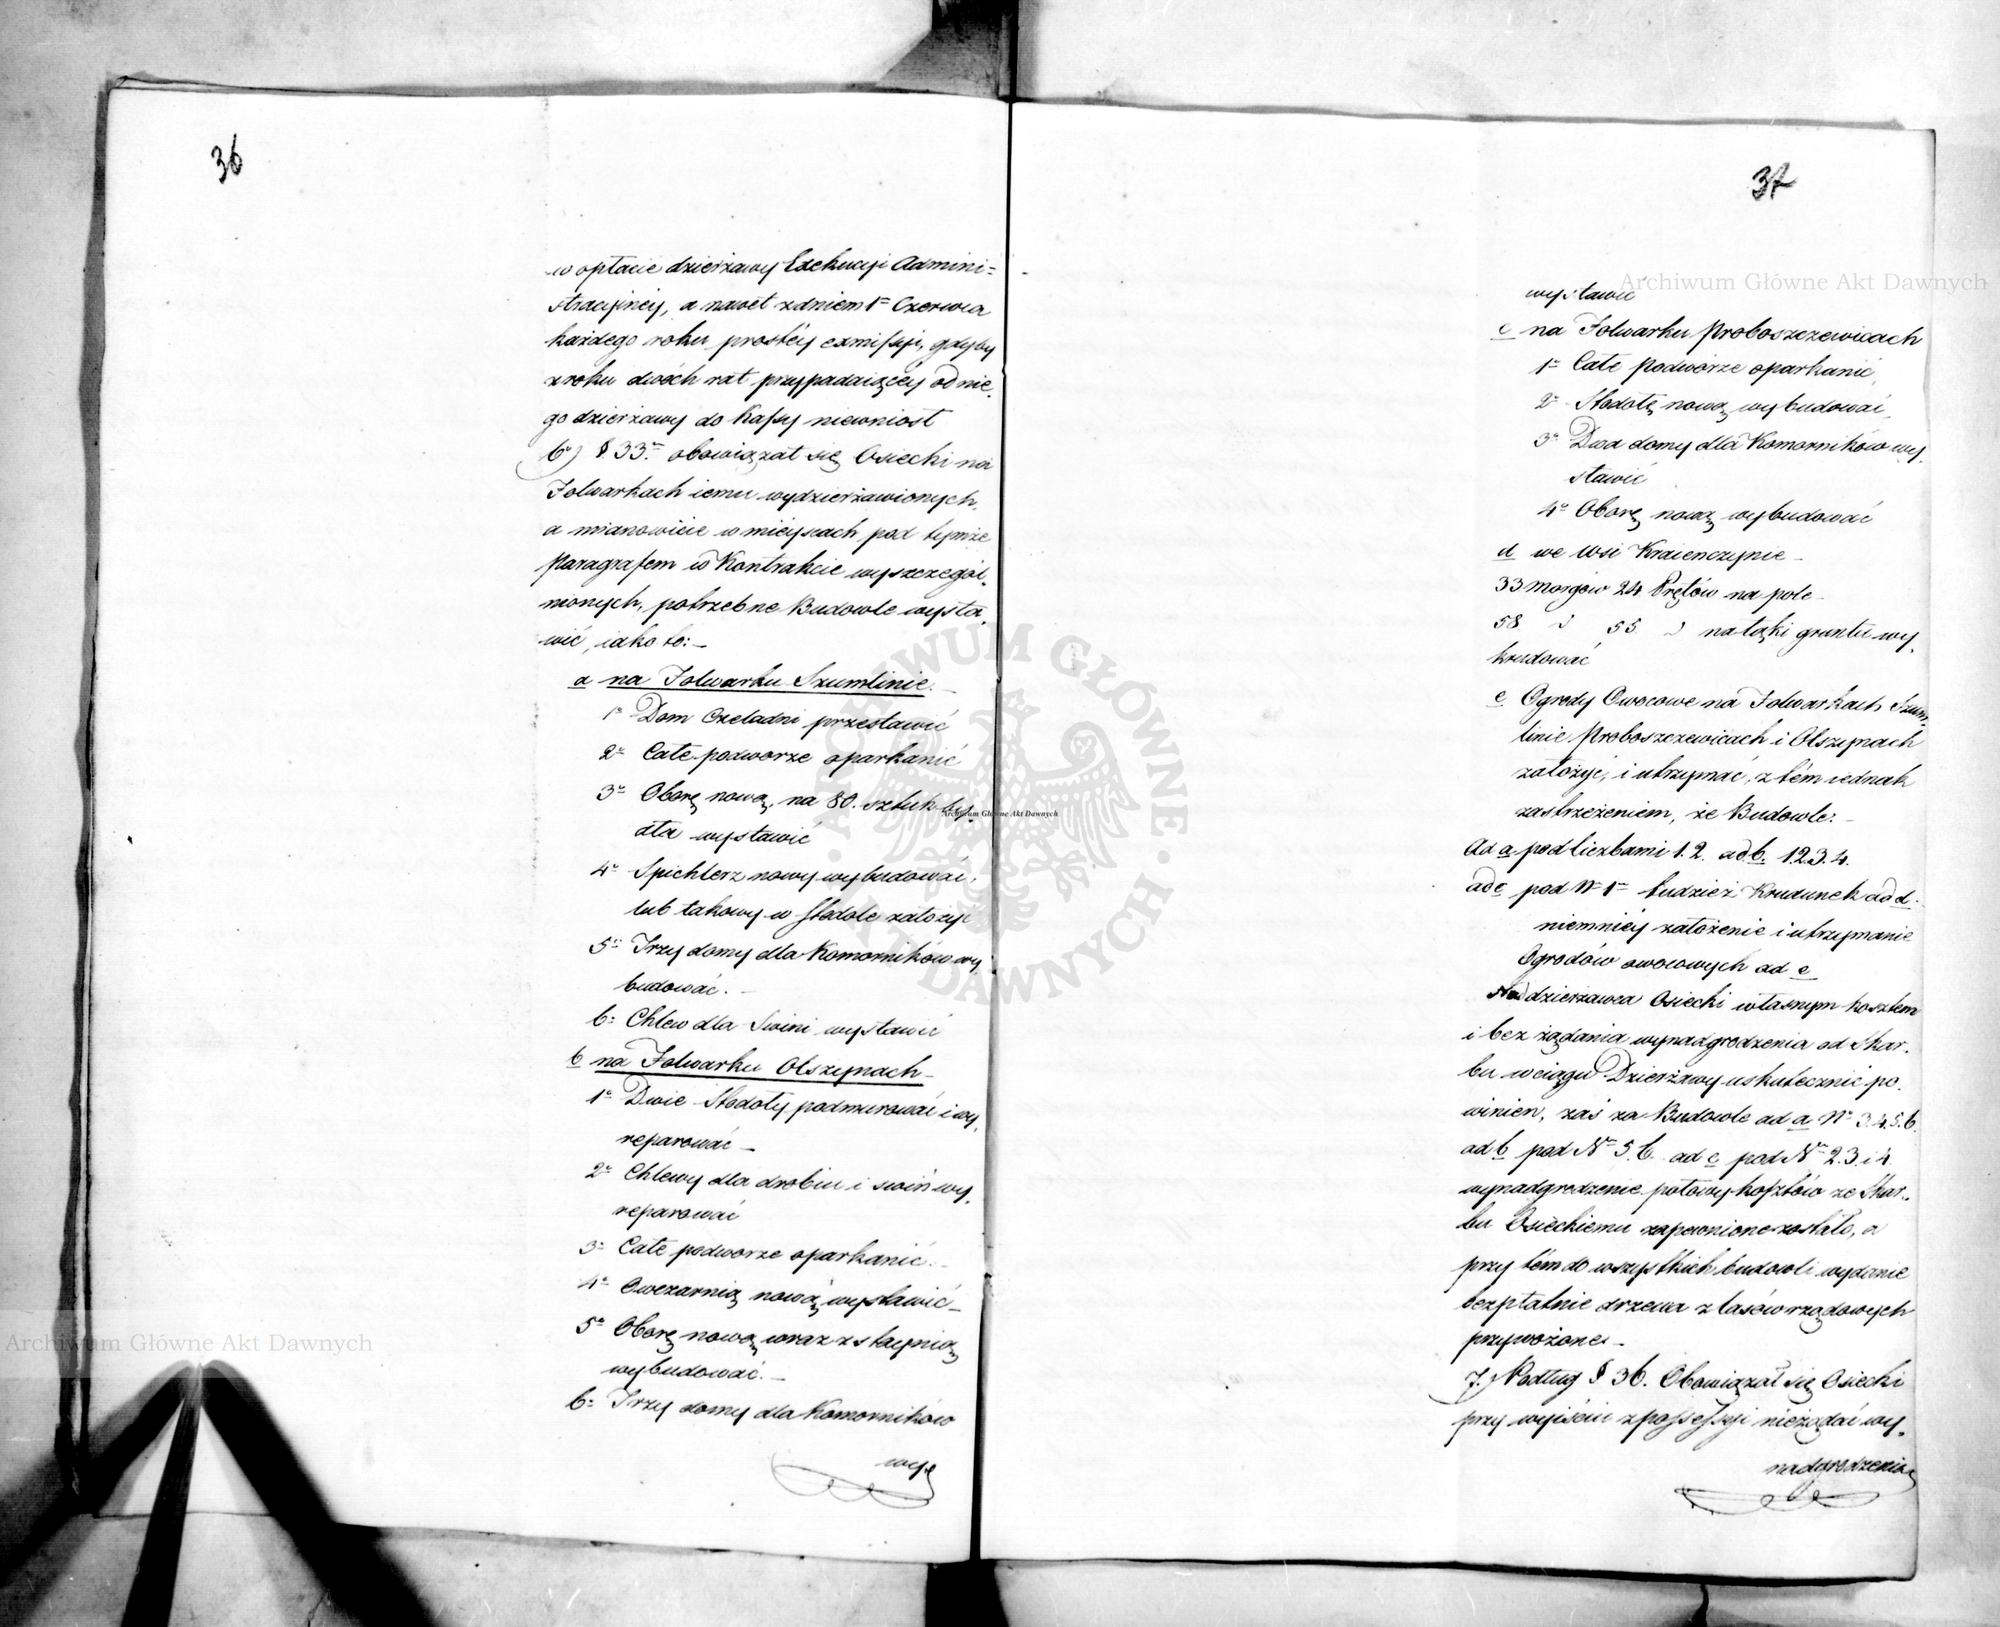 36
w opłacie dzierżawy Exekucyi Admini=
stracyjnéy, a nawet z dniem 1º Czerwca
każdego roku prostéy exmissyi, gdyby
z roku dwóch rat przypadaiącéy od nie
go dzierżawy do Kassy niewniosł
6º) §. 33º obowiązał się Osiecki na
Folwarkach iemu wydzierżawionych,
a mianowicie w mieyscach pod tymże
Paragrafem w Kontrakcie wyszczegól-
nionych, potrzebne Budowle wysta-
wić, iako to: –
a na Folwarku Szumlinie. –
1º Dom Czeladni przestawić
2º Całe podworze oparkanić
3º Oborę nową, na 80. sztuk by-
dła wystawić
4º Spichlerz nowy wybudować,
lub takowy w stodole założyć
5º Trzy domy dla Komorników wy
budować. –
6: Chlew dla Swini wystawić
b na Folwarku Olszynach –
1º Dwie Stodoły podmurować i wy-
reparować –
2º Chlewy dla drobiu i swiń wy-
reparować
3º Całe podworze oparkanić. –
4º Owczarnią nową wystawić –
5º Oborę nową wraz z staynią
wybudować. –
6: Trzy domy dla Komorników
wys
37
wystawić
c na Folwarku Proboszczewicach
1º Całe podwórze oparkanić,
2º Stodołę nową wybudować,
3º Dwa domy dla Komorników wy-
stawić
4º Oborę nową wybudować
d we Wsi Kraienczynie –
33 morgów 24 Prętów na pole –
58 55 na łąki gruntu wy-
krudować
e Ogrody Owocowe na Folwarkach Szum-
linie Proboszczewicach i Olszynach
założyć, i utrzymać, z tém iednak
zastrzeżeniem, że Budowle: –
Ad a pod liczbami 1. 2. ad b. 1 2. 3. 4.
ad c pod Nº 1º tudzież Krudunek ad d.
niemniéy założenie i utrzymanie
Ogrodów owocowych ad e
dzierżawca Osiecki własnym kosztem
i bez żądania wynadgrodzenia od Skar-
bu w ciągu Dzierżawy uskutecznić po-
winien, zaś za Budowle ad a Nº 3. 4. 5. 6.
ad b pod Nº 5. 6. ad c pod Nº 2. 3. i 4.
wynadgrodzenie połowy kosztów ze Skar-
bu Osieckiemu zapewnione zostało, a
przytém do wszystkich budowli wydanie
bezpłatnie drzewa z lasów rządowych
przywożone. –
7.) Podług § 36. Obowiązał się Osiecki
przy wyiściu z possessyi nieżądać wy-
nadgrodzenia
Archiwum Główne Akt Dawnych
Archiwum Główne Akt Dawnych
Archiwum Główne Akt Dawnych
ARCHIWUM GŁÓWNE AKT DAWNYCH